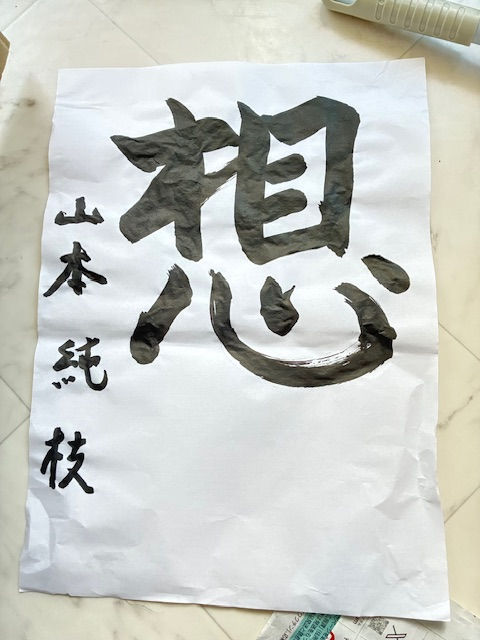 想
山本純枝